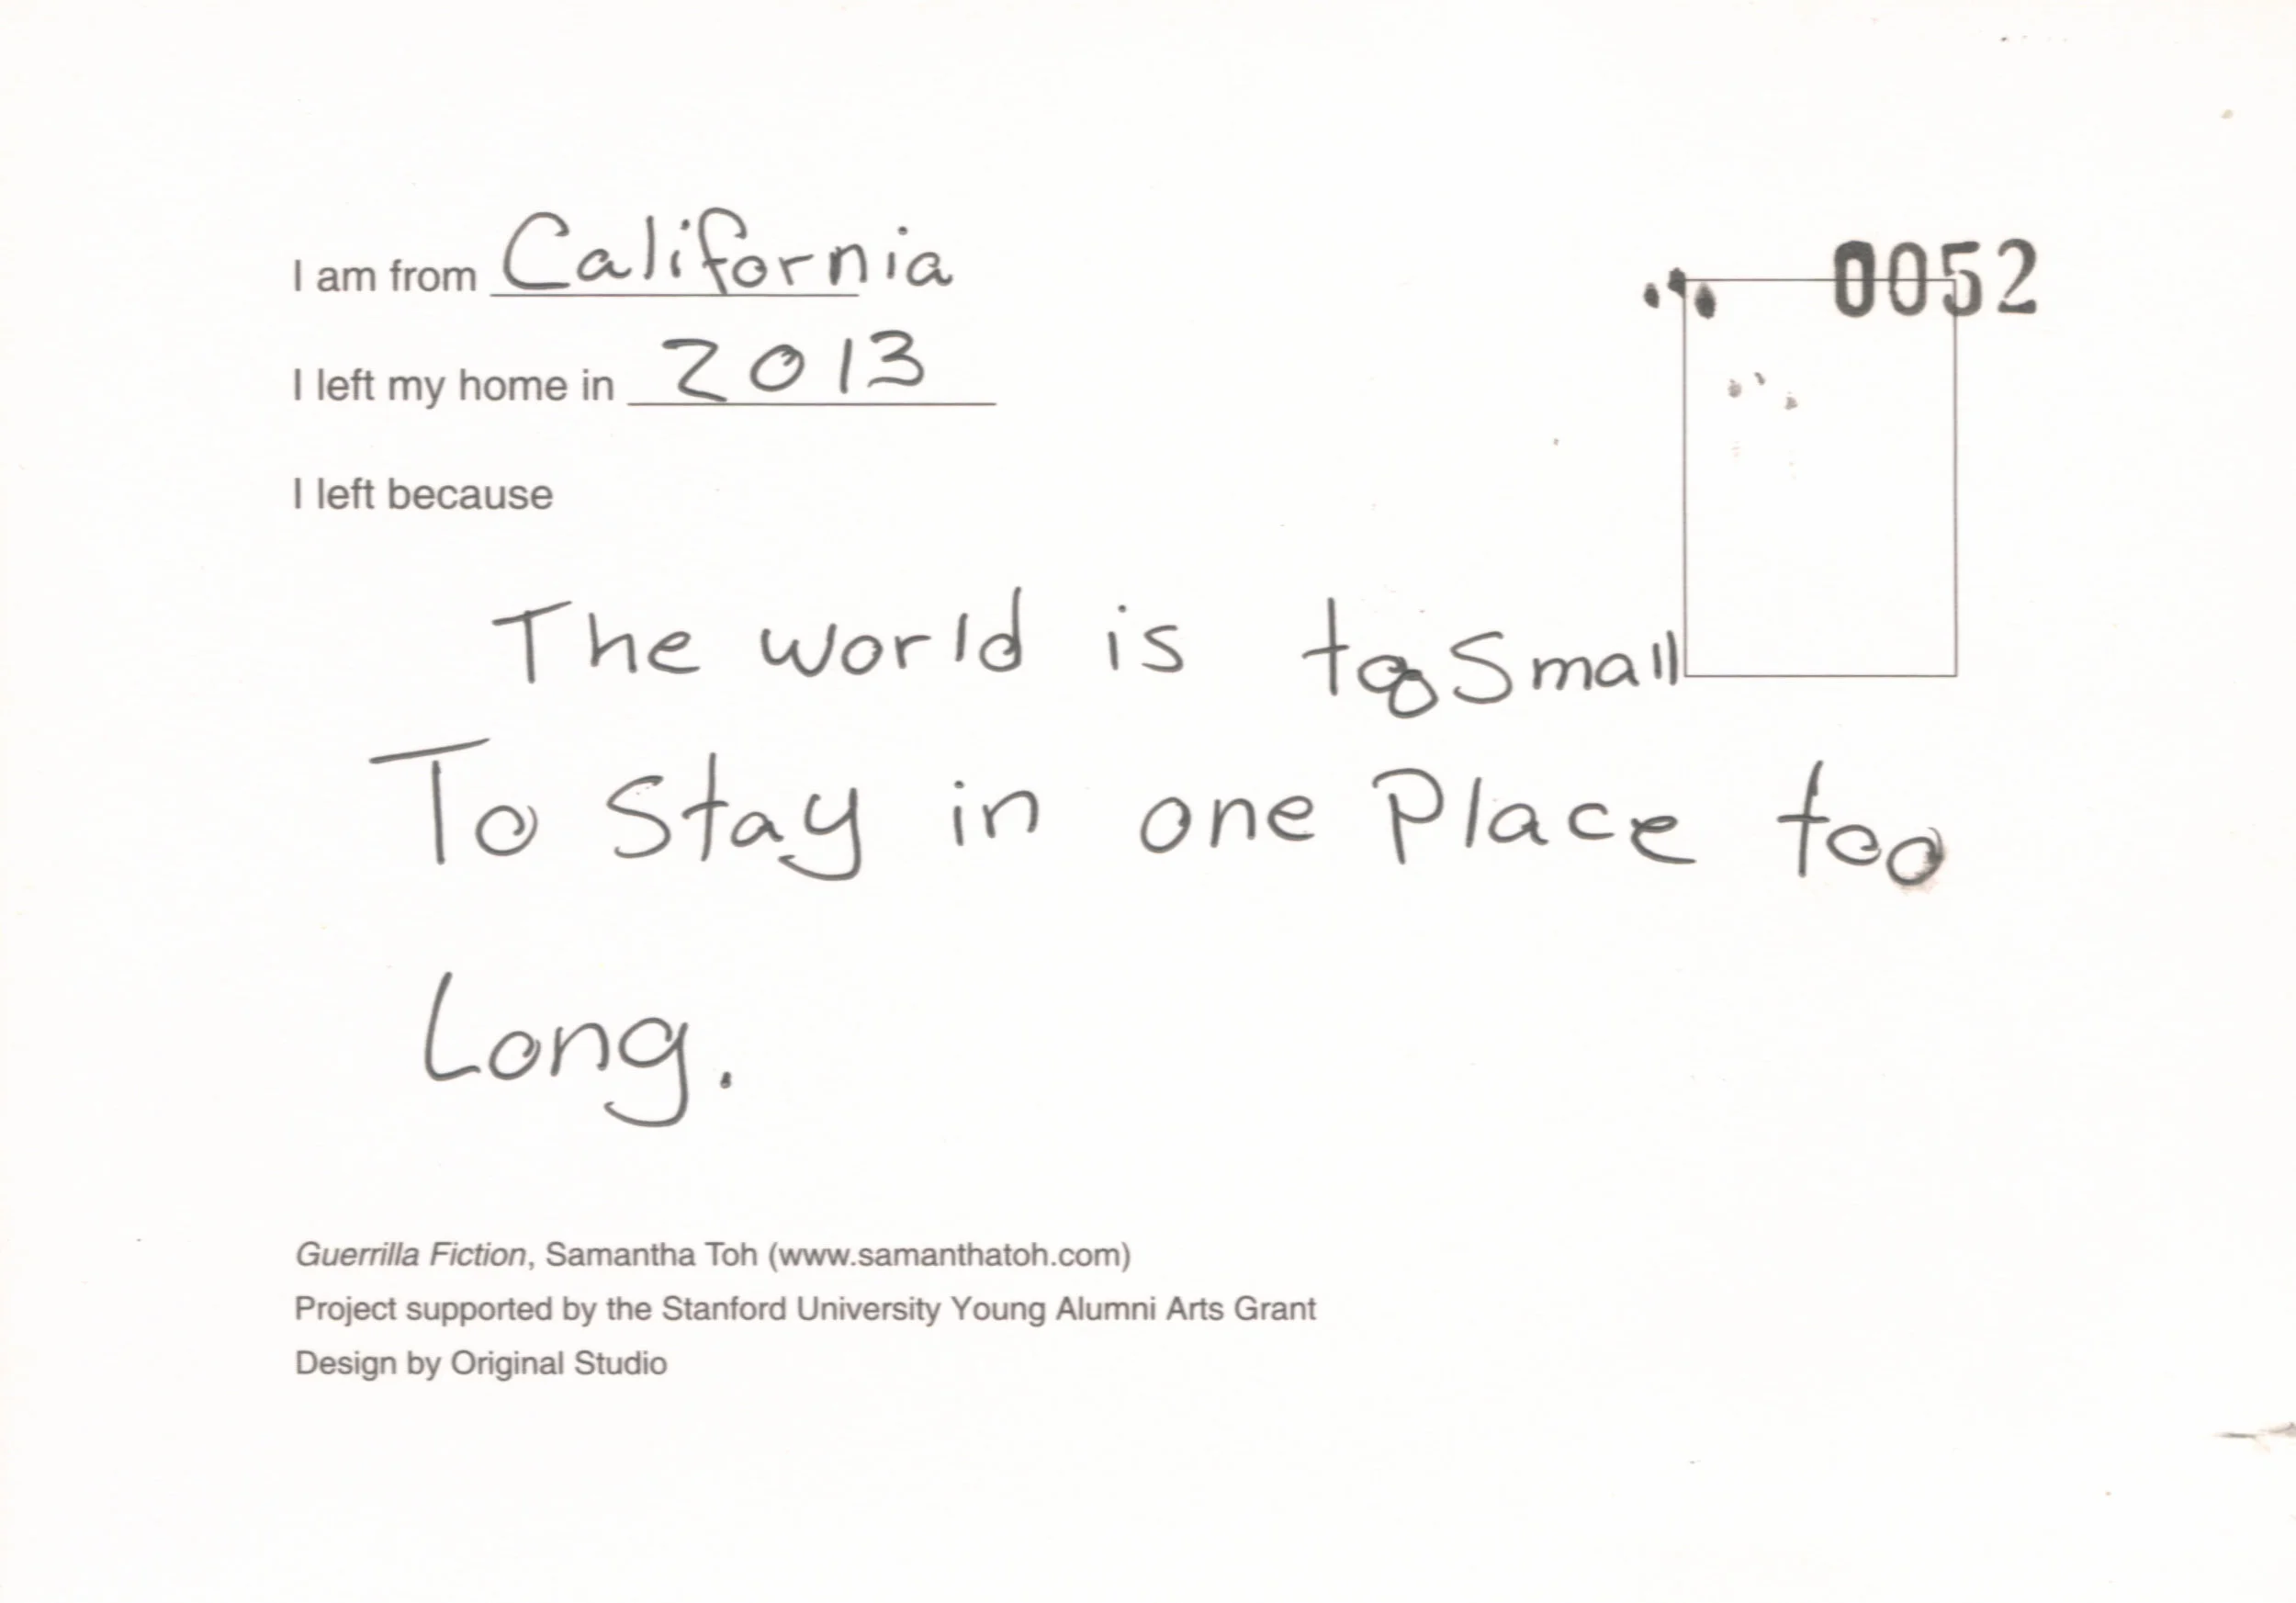 I am from California
0052
I left my home in 2013
I left because
The world is too Small
To Stay in one Place too
Long.
Guerrilla Fiction, Samantha Toh (www.samanthatoh.com)
Project supported by the Stanford University Young Alumni Arts Grant
Design by Original Studio